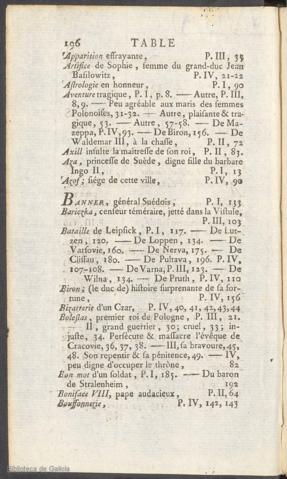 196 TABLE
Apparition effrayante, P. III, 35
Artifice de Sophie, femme du grand-duc Jean
Basilowitz, P. IV, 21-22
Astrologie en honneur, P. I, 90
Aventure tragique, P. I, p. 8. — Autre, P. III,
8, 9. — Peu agréable aux maris des femmes
Polonoises, 31-32. — Autre, plaisante & tra-
gique, 53. — Autre, 57-58. — De Ma-
zeppa, P. IV, 93. — De Biron, 156. — De
Waldemar III, à la chasse, P. II, 72
Axill insulte la maîtresse de son roi, P. II, 83.
Aza, princesse de Suède, digne fille du barbare
Ingo II, P. I, 13
Azof; siége de cette ville, P. IV, 90
BANNER, général Suédois, P. I, 133
Bariczka, censeur téméraire, jetté dans la Vistule,
P. III, 103
Bataille de Leipsick, P. I, 117. — De Lut-
zen, 120. — De Loppen, 134. — De
Varsovie, 160. — De Nerva, 175. — De
Clissau, 180. — De Pultava, 196. P. IV,
107-108. — De Varna, P. III, 123. — De
Wilna, 134. — De Pruth, P. IV, 110
Biron; (le duc de) histoire surprenante de sa for-
tune, P. IV, 156
Bizarterie d'un Czar, P. IV, 40, 41, 42, 43, 44
Boleslas, premier roi de Pologne, P. III, 21.
— II, grand guerrier, 30; cruel, 33; in-
juste, 34. Persécute & massacre l'évêque de
Cracovie, 36, 37, 38. — III, sa bravoure, 45,
48. Son repentir & sa pénitence, 49. — IV,
peu digne d'occuper le thrône, 82
Bon mot d'un soldat, P. I, 185. — Du baron
de Stralenheim, 192
Boniface VIII, pape audacieux, P. II, 64
Bouffonnerie, P. IV, 142, 143
Biblioteca de Galicia